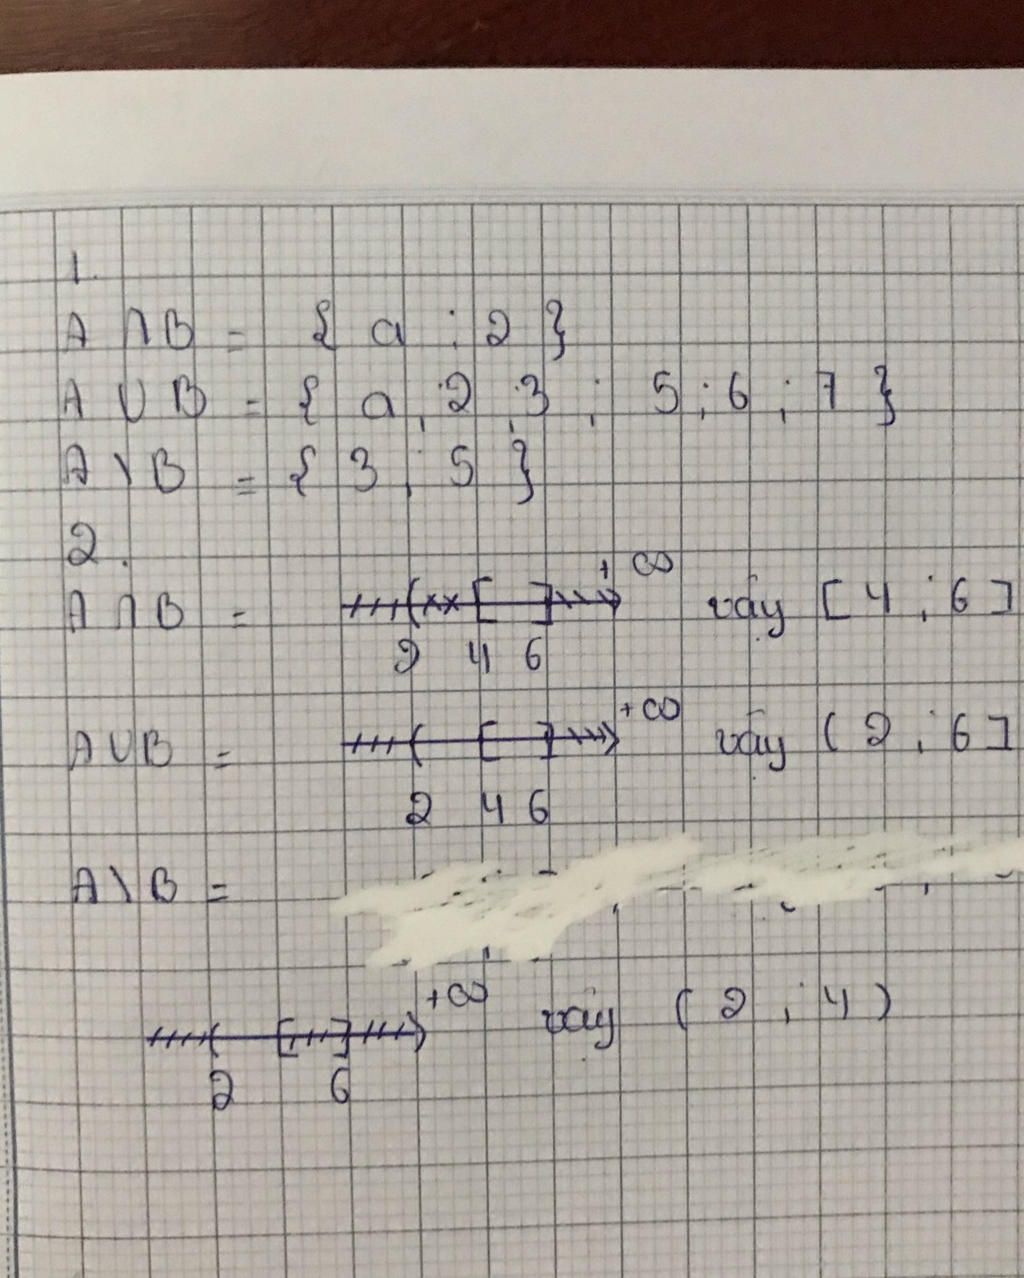 1.
A ∩ B = { a ; 2 }
A ∪ B = { a ; 2 ; 3 ; 5 ; 6 ; 7 }
A \ B = { 3 ; 5 }
2.
A ∩ B = ( [ ] +∞ vây [ 4 ; 6 ]
2 4 6
A ∪ B = ( [ ] +∞ vây ( 2 ; 6 ]
2 4 6
A \ B =
( [ ] +∞ vây ( 2 ; 4 )
2 6